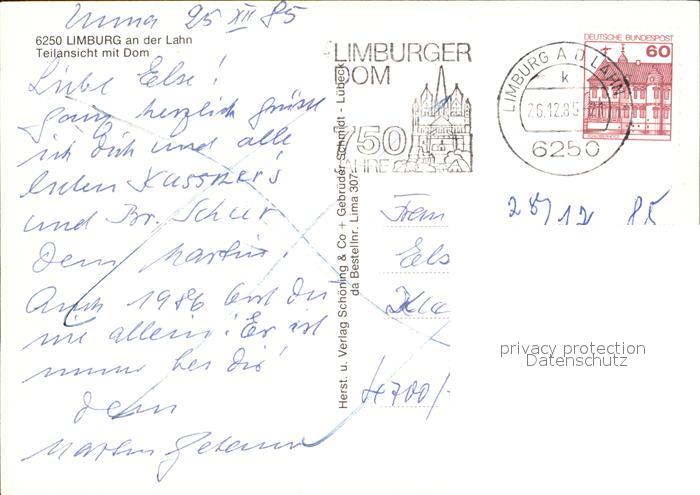 25 XII 85
6250 LIMBURG an der Lahn
Teilansicht mit Dom
Liebe Else!
ganz herzlich grüsse
ich Dich und alle
lieben
und Br.
Dein Martin!
Auch 1986 bist Du
nie allein! Er ist
immer bei Dir!
Dein
Martin
Herst. u. Verlag Schöning & Co + Gebrüder Schmidt - Lübeck
da Bestellnr. Lima 307
LIMBURGER
DOM
750
JAHRE
LIMBURG A D LAHN
k
26.12.85-21
6250
DEUTSCHE BUNDESPOST
60
28/12 85
Frau
Els
Kla
4700/
privacy protection
Datenschutz